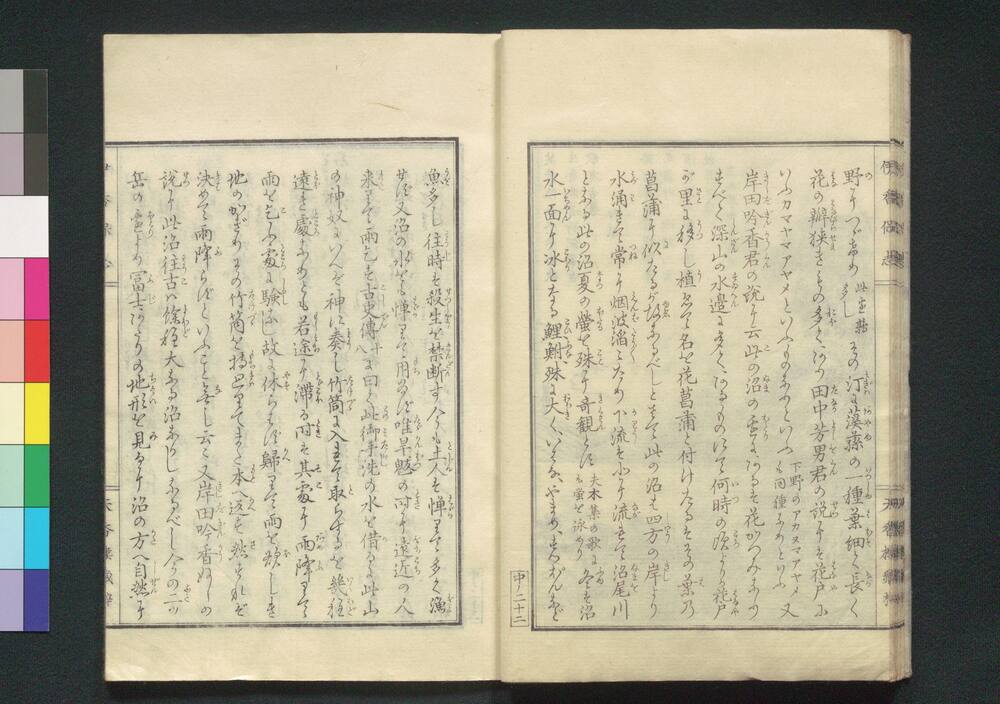 野よりつゞきぬ 此處蘋多し その汀に溪蓀の一種葉細く長く
花の瓣狭きもの多くあり田中芳男君の説には花戸に
いふカマヤマアヤメといふものなりといふ 下野のアカヌマアヤメも同種なりといふ 又
岸田吟香君の説に云此の沼の
すべて深山の水邊に多くあるものにて何時の頃よりか花戸
が里に移し植ゑて名を花菖蒲と付けたるもその葉乃
菖蒲に似たる故なるべしとまた此の沼は四方の岸より
水涌きて常に烟波滔々ため下流を小に流れて沼尾川
となる此の沼夏の螢を殊に奇観とす 夫木集の歌にも螢を詠めり 冬は沼
水一面に氷となる鯉鮒殊に大く
中二十二
魚多し往時は殺生を禁断す今も土人は憚りて多く漁
せず又沼の水をも憚りて用ゐず唯旱魃の時は遠近の人
来りて雨乞す古史傳 十八 に曰く此御手洗の水を借るは此山
の神奴にいへば神に奏し竹筒に入れて取らするを幾程
遠き處なりとも若途に滞る時は其處に雨降りて
雨を乞ふ處に験なし故に休らはず歸りて雨を
地のかぎりその竹筒を持ちめぐりてまた本へ返す然すれば
決めて雨降らずといふこと無し云々又岸田吟香ぬしの
説に此沼往古は餘程大なる沼なりしなるべし今の二ッ
岳の邊より冨士あたりの地形を見るに沼の方へ自然に